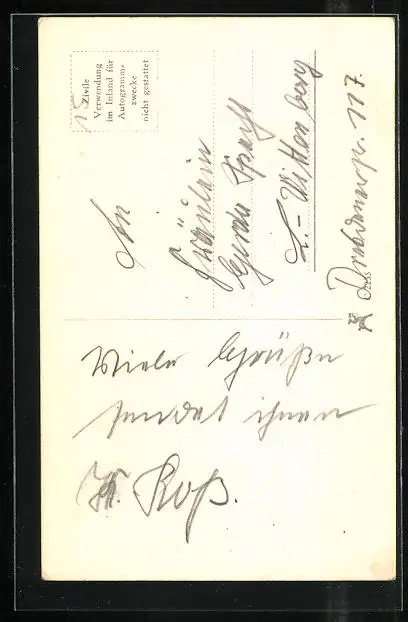 Zivile
Verwendung
im Inland für
Autogramm-
zwecke
nicht gestattet
An
Fräulein
Gerda
L.-Wittenberg
117.
Viele Grüße
sendet ihnen
Roß.